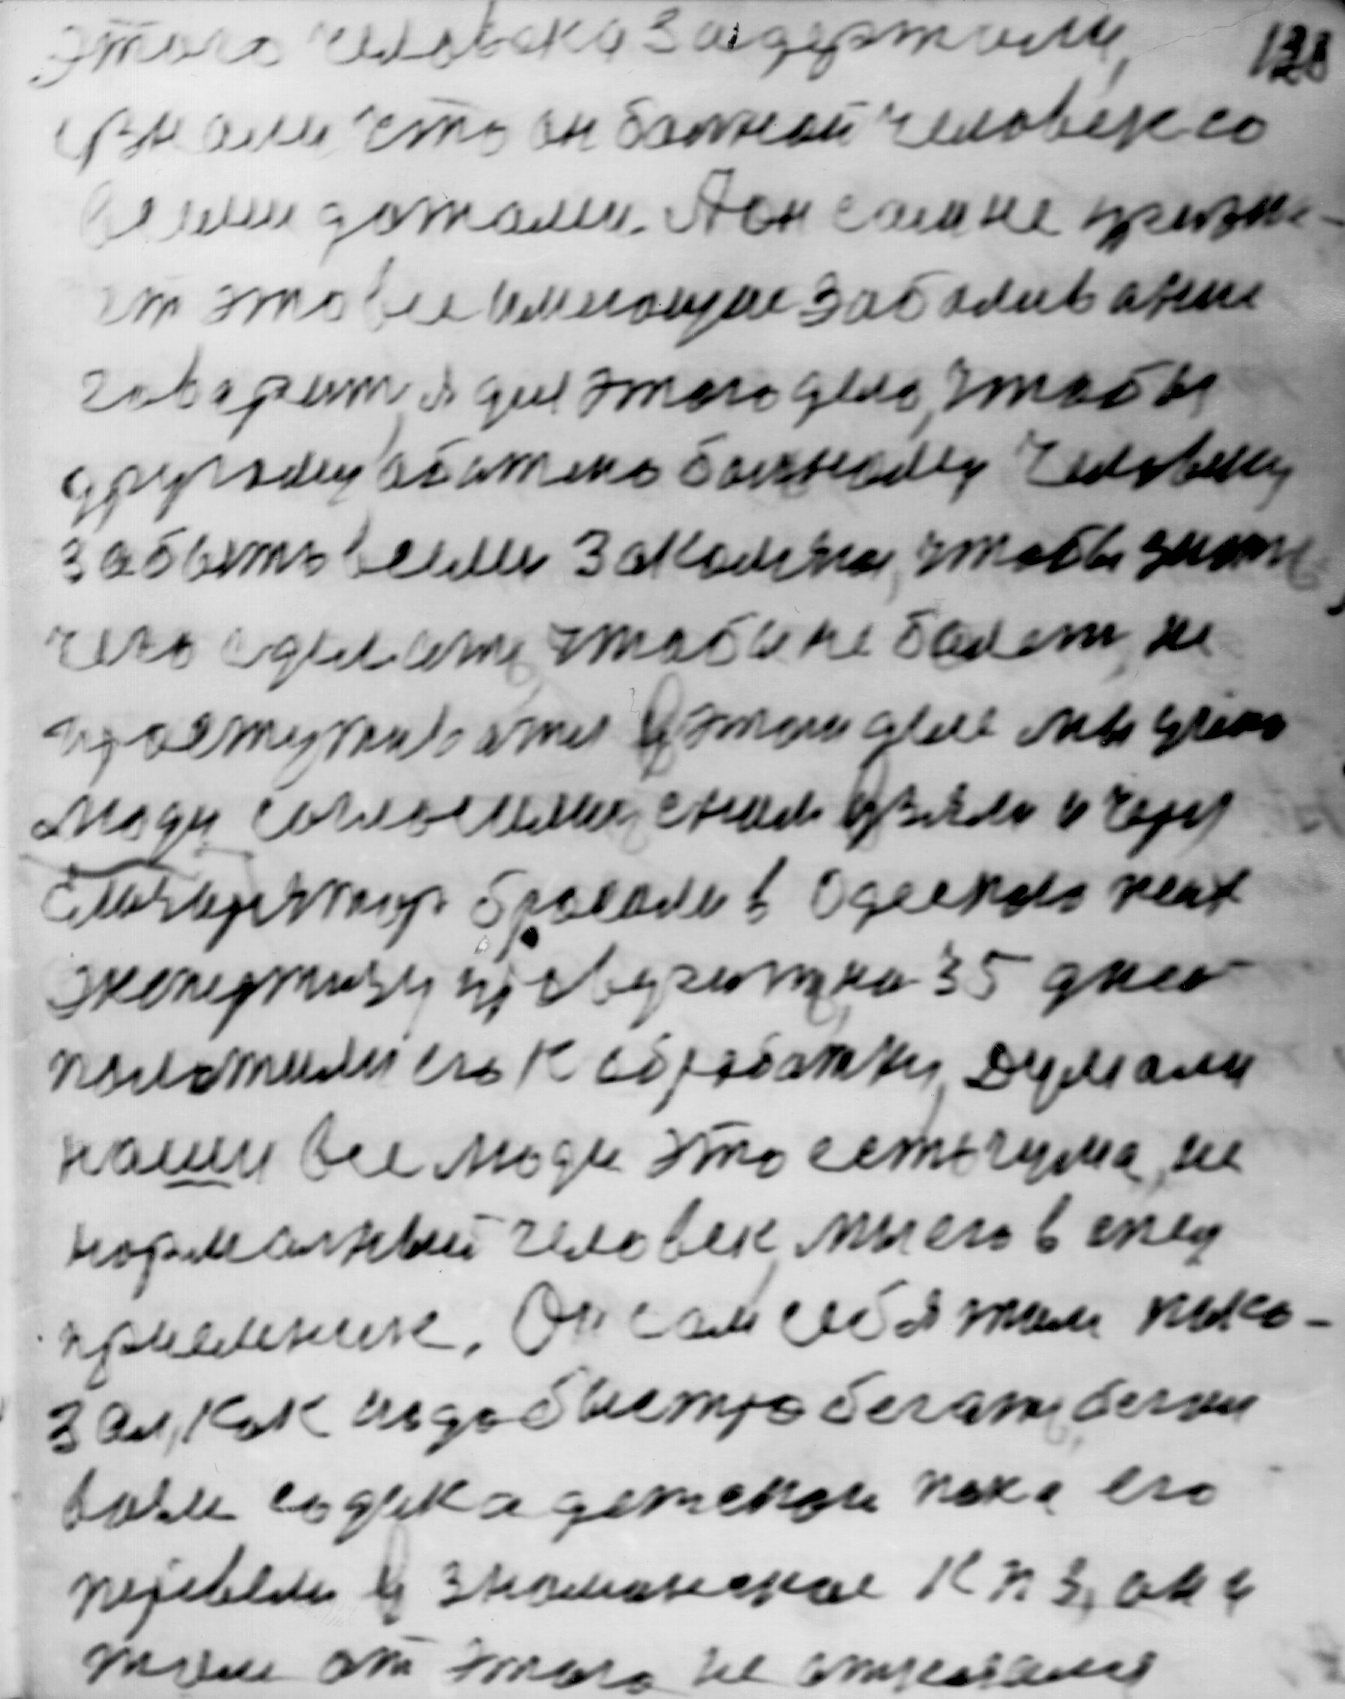 этого человека задержали, 138
узнали что он больной человек со
всеми датами. А он сам не призна-
ет это все имеющие заболивание
говорит, я для этого дело, чтобы
другому обатено больному человеку
забыть всеми законами, чтобы знать,
чего сделать, чтобы не болеть, не
простужиаться В этом деле мы
люди согласились с ним взяли и через
бросали в Одесскую
экспертизу на 35 дней
положили его к обработки, Думали
наши все люди это есть чума, не
нормальный человек, мы его в спец
приемник. Он сам себя там пока-
зал, как надо быстро бегать, бегал
вокруг садика детского пока его
перевели В знаменское КПЗ, он и
там от этого не отказался